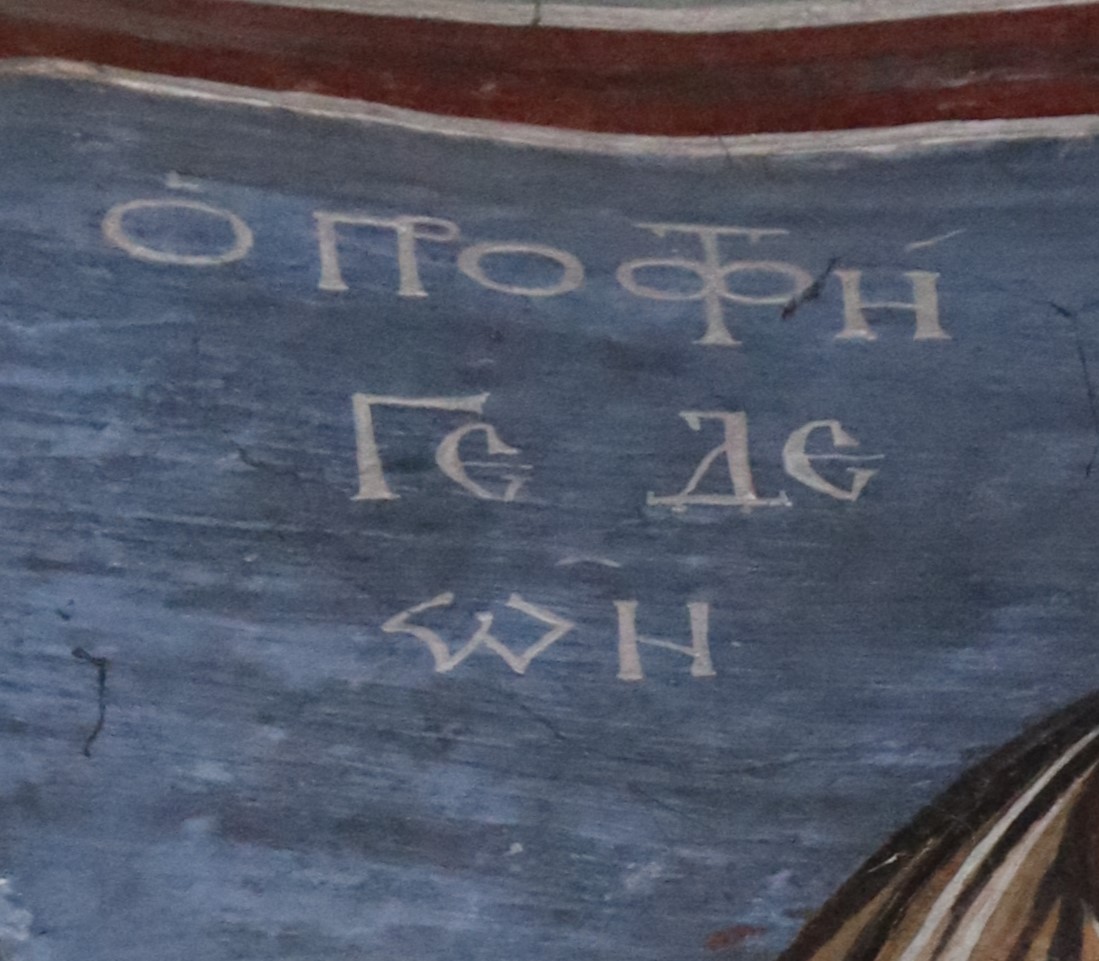 Ὁ ΠΡΟΦΉ
ΓΕ ΔΕ
ΩΝ